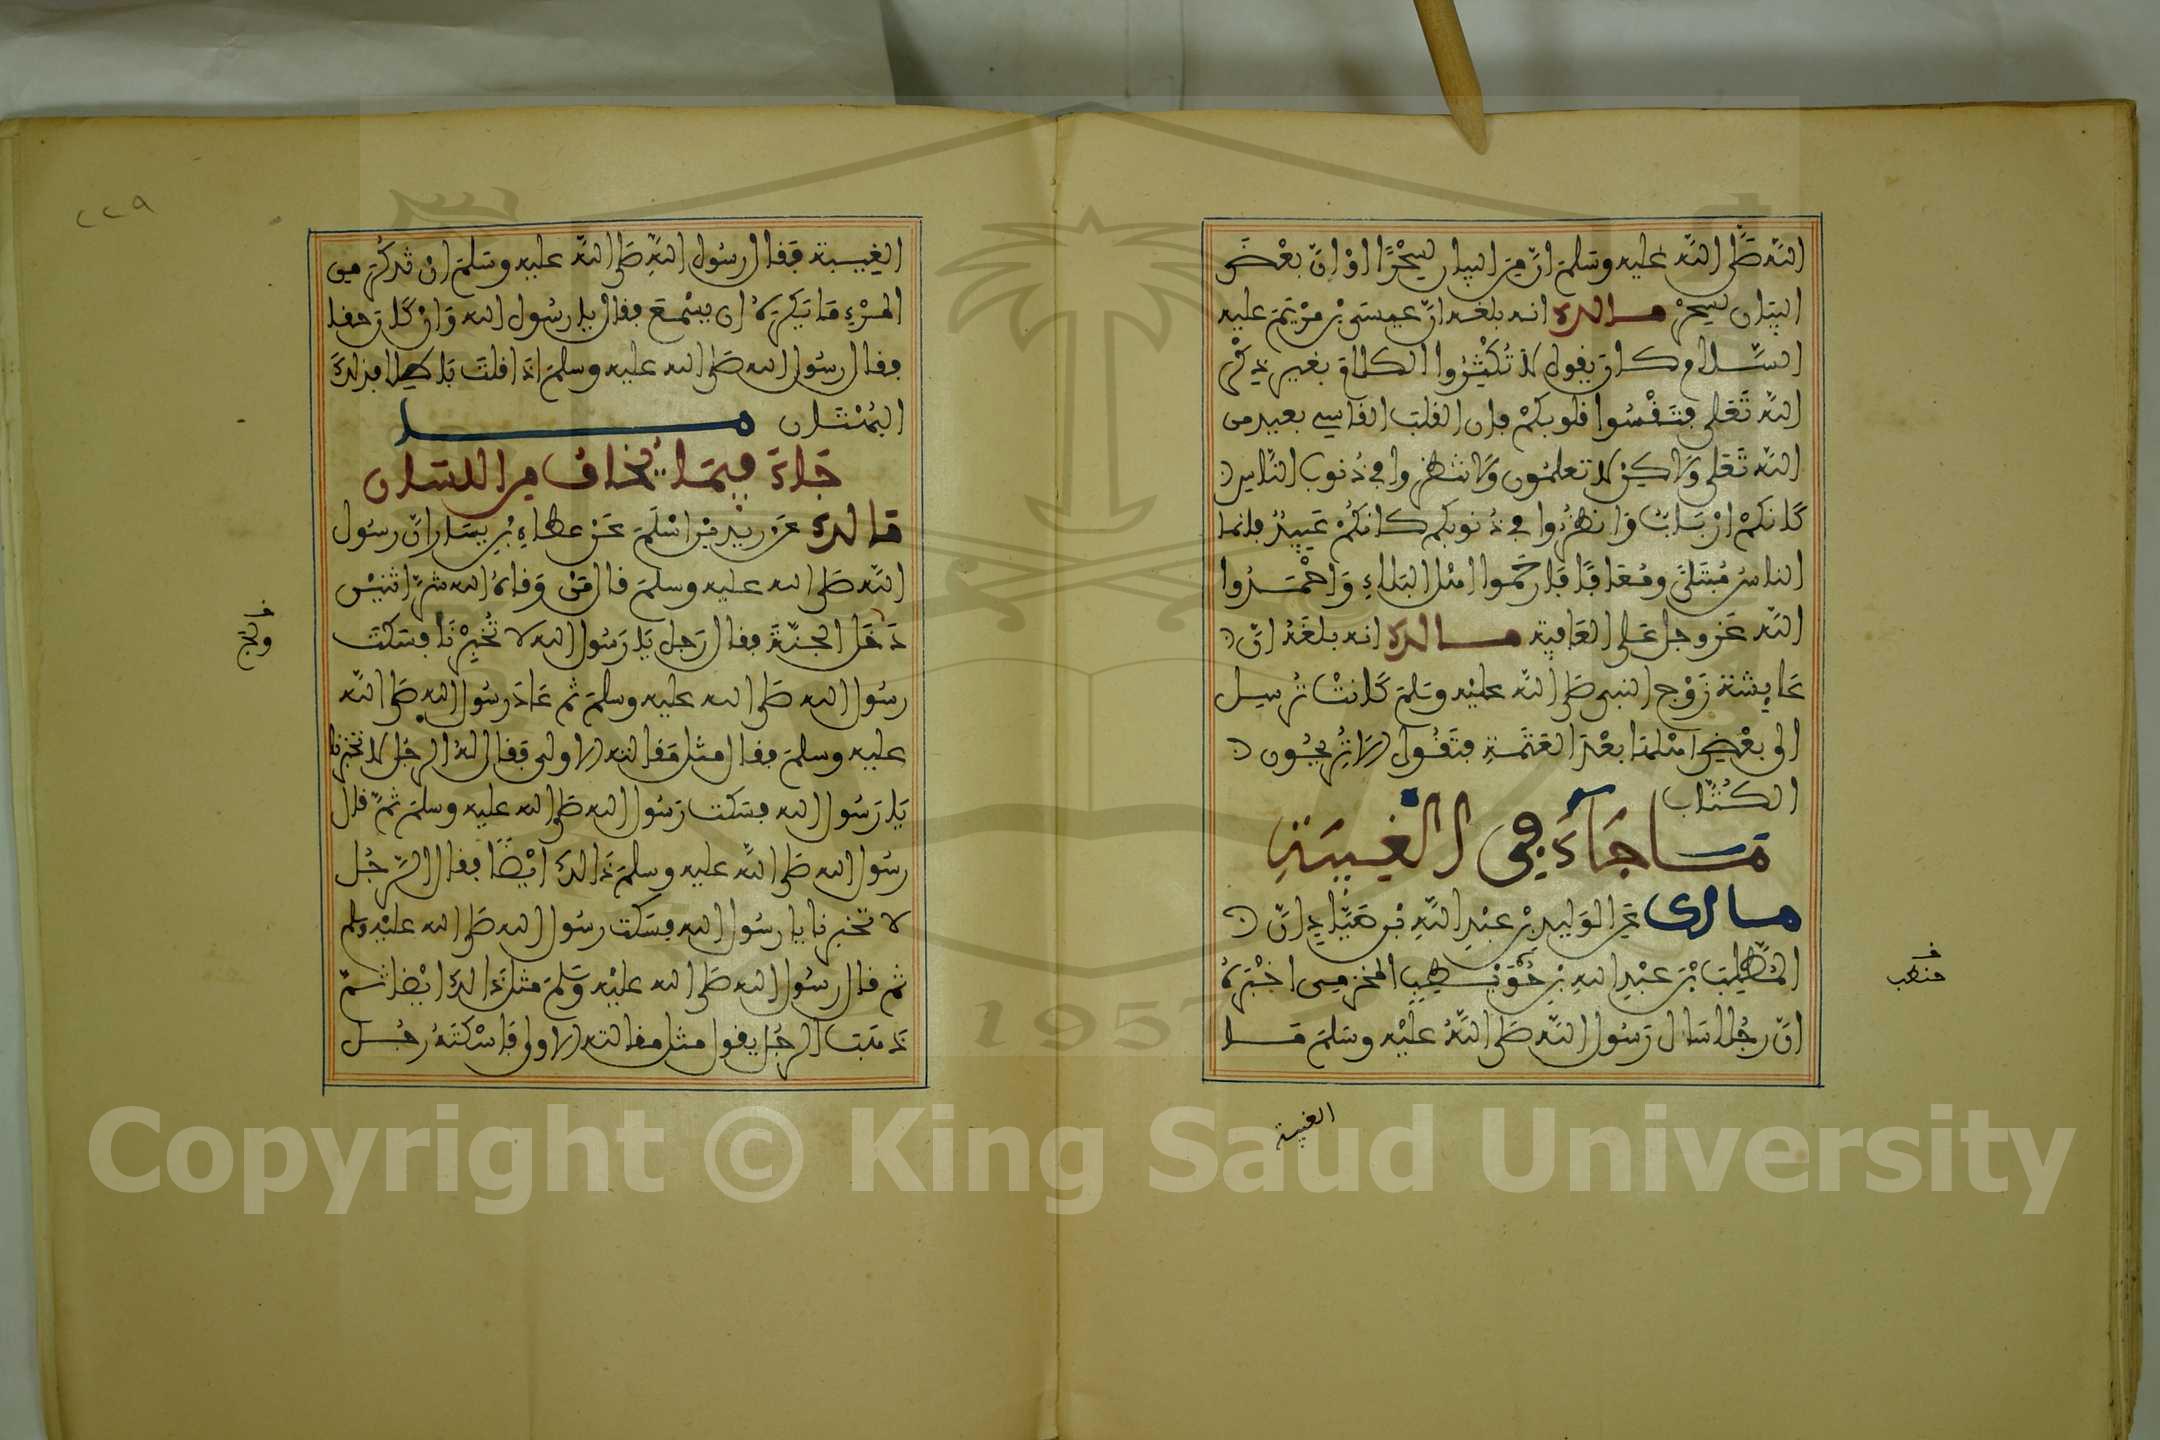 الله صلى الله عليه وسلم ان من البيان لسحرا او ان بعض
البيان لسحر مالك انه بلغه ان عيسى بن مريم عليه
السلام كان يقول لا تكثروا الكلام بغير ذكر
الله تعلى فتقسوا قلوبكم فان القلب القاسي بعيد من
الله تعلى ولاكن لا تعلمون ولا تنظروا في ذنوب الناس
كانكم ارباب وانظروا في ذنوبكم كانكم عبيد فانما
الناس مبتلى ومعافا فارحموا اهل البلاء واحمدوا
الله عز وجل على العافية مالك انه بلغه ان
عايشة زوج النبي صلى الله عليه وسلم كانت ترسل
الى بعض اهلها بعد العتمة فتقول الا تريحون
الكتاب
ما جاء في الغيبة
مالك عن الوليد بن عبد الله بن صياد ان
المطلب بن عبد الله بن حويطب المخزومي اخبره
ان رجلا سال رسول الله صلى الله عليه وسلم ما
الغيبة
حنطب
٢٢٩
الغيبة فقال رسول الله صلى الله عليه وسلم ان تذكر من
المرء ما يكره ان يسمع فقال يا رسول الله وان كان حقا
فقال رسول الله صلى الله عليه وسلم اذا قلت باطلا فذلك
البهتان ما
جاء فيما يخاف من اللسان
مالك عن زيد بن اسلم عن عطاء بن يسار ان رسول
الله صلى الله عليه وسلم قال من وقاه الله شر اثنين
دخل الجنة فقال رجل يا رسول الله لا تخبرنا فسكت
رسول الله صلى الله عليه وسلم ثم عاد رسول الله صلى الله
عليه وسلم فقال مثل مقالته الاولى فقال له الرجل لا تخبرنا
يا رسول الله فسكت رسول الله صلى الله عليه وسلم ثم قال
رسول الله صلى الله عليه وسلم ذالك ايضا فقال الرجل
لا تخبرنا يا رسول الله فسكت رسول الله صلى الله عليه وسلم
ثم قال رسول الله صلى الله عليه وسلم مثل ذالك ايضا ثم
ذهب الرجل يقول مثل مقالته الاولى فاسكته رجل
Copyright © King Saud University
1957